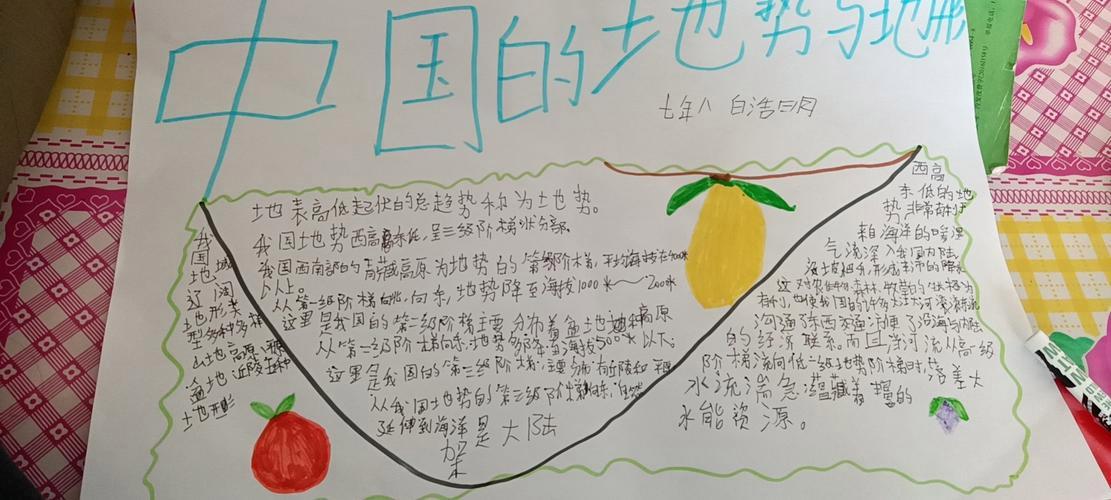 中国的地势与地形
七年八 白浩明
地表高低起伏的总趋势称为土地势。
我国土地势西高东低,呈三级阶梯状分部。
我国西南部的青藏高原为地势的第一级阶梯,平均海拔在4000米
以上。
从第一级阶梯 向东,地势降至海拔1000米~2000米
这里是我国的第二级阶梯主要分布着盆土地 和高原
从第二级阶梯向东,地势多降至海拔500米以下。
这里是我国的第三级阶梯,主要分布有丘陵和平原
从我国土地势的第三级阶梯 向东,自然
延伸到海洋是大陆
架
我
国
土地域
辽阔
土地形类
型多种多样
山土地高原
盆地丘陵
土地形
西高
东低的地
势非常有利
来自海洋的暖湿
气流深入我国内陆
形成丰沛的降水
沟通东西交通,方便了沿海与内陆
的经济联系。而且当河流从高一级
阶梯流向低一级地势阶梯时,落差大
水流湍急,蕴藏着 的
水能资源。